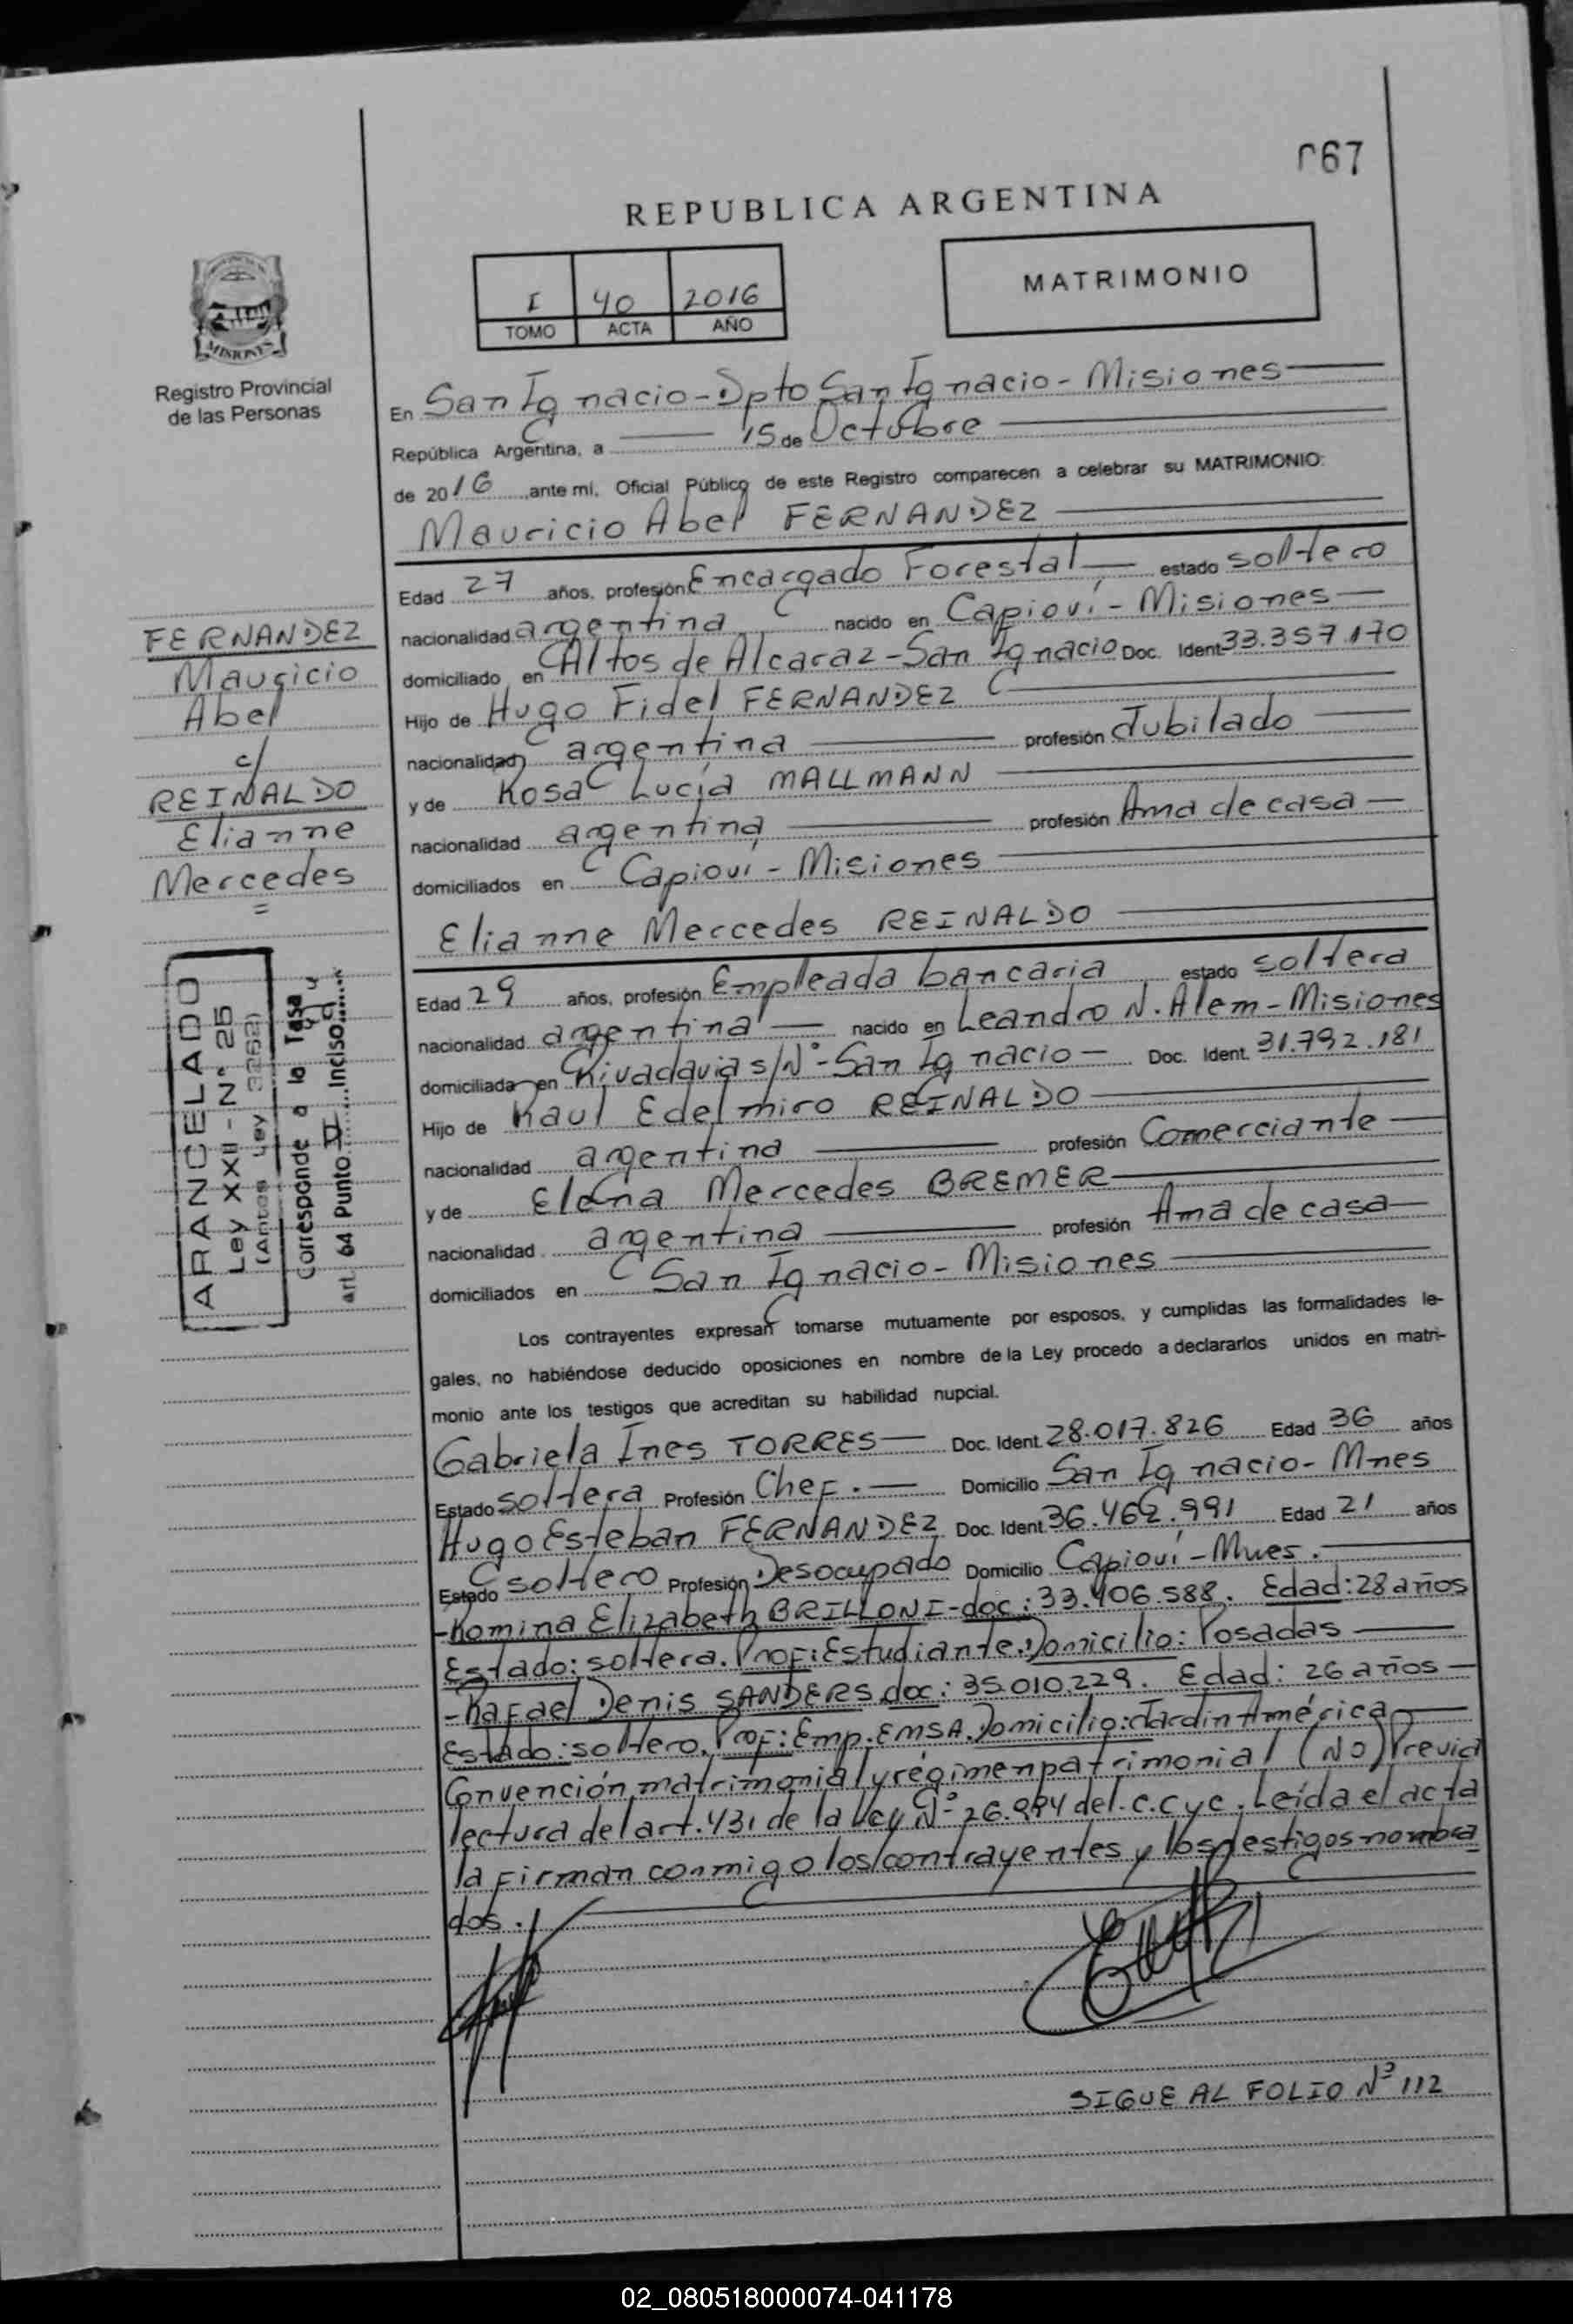 067
REPUBLICA ARGENTINA
MATRIMONIO
I 40 2016
TOMO ACTA AÑO
MISIONES
Registro Provincial
de las Personas
En San Ignacio - Dpto San Ignacio - Misiones
República Argentina, a 15 de Octubre
de 2016, ante mí, Oficial Público de este Registro comparecen a celebrar su MATRIMONIO:
Mauricio Abel FERNANDEZ
Edad 27 años, profesión Encargado Forestal estado soltero
nacionalidad argentina nacido en Capioví - Misiones
domiciliado en Altos de Alcaraz - San Ignacio Doc. Ident. 33.357.170
Hijo de Hugo Fidel FERNANDEZ
nacionalidad argentina profesión Jubilado
y de Rosa Lucía MALLMANN
nacionalidad argentina profesión Ama de casa
domiciliados en Capioví - Misiones
FERNANDEZ
Mauricio
Abel
c/
REINALDO
Elianne
Mercedes
=
Elianne Mercedes REINALDO
Edad 29 años, profesión Empleada bancaria estado soltera
nacionalidad argentina nacido en Leandro N. Alem - Misiones
domiciliada en Rivadavia s/N° - San Ignacio Doc. Ident. 31.792.181
Hijo de Raul Edelmiro REINALDO
nacionalidad argentina profesión Comerciante
y de Elena Mercedes BREMER
nacionalidad argentina profesión Ama de casa
domiciliados en San Ignacio - Misiones
ARANCELADO
Ley XXII - N° 25
(Antes Ley 3262)
Corresponde a la Tasa
art. 64 Punto II Inciso
Los contrayentes expresan tomarse mutuamente por esposos, y cumplidas las formalidades le-
gales, no habiéndose deducido oposiciones en nombre de la Ley procedo a declararlos unidos en matri-
monio ante los testigos que acreditan su habilidad nupcial.
Gabriela Ines TORRES Doc. Ident. 28.017.826 Edad 36 años
Estado soltera Profesión Chef. Domicilio San Ignacio - Mnes
Hugo Esteban FERNANDEZ Doc. Ident. 36.462.991 Edad 21 años
Estado soltero Profesión Desocupado Domicilio Capioví - Mnes.
- Romina Elizabeth BRILLONI - doc: 33.406.588. Edad: 28 años
Estado: soltera. Prof: Estudiante. Domicilio: Posadas
- Rafael Denis SANDERS doc: 35.010.229. Edad: 26 años
Estado: soltero. Prof: Emp. EMSA. Domicilio: Jardin América
Convención matrimonial y régimen patrimonial (NO) Previa
lectura del art. 431 de la Ley N° 26.994 del C.C y C. Leída el acta
la Firman conmigo los contrayentes y los testigos nombra
dos.
SIGUE AL FOLIO N° 112
02_080518000074-041178